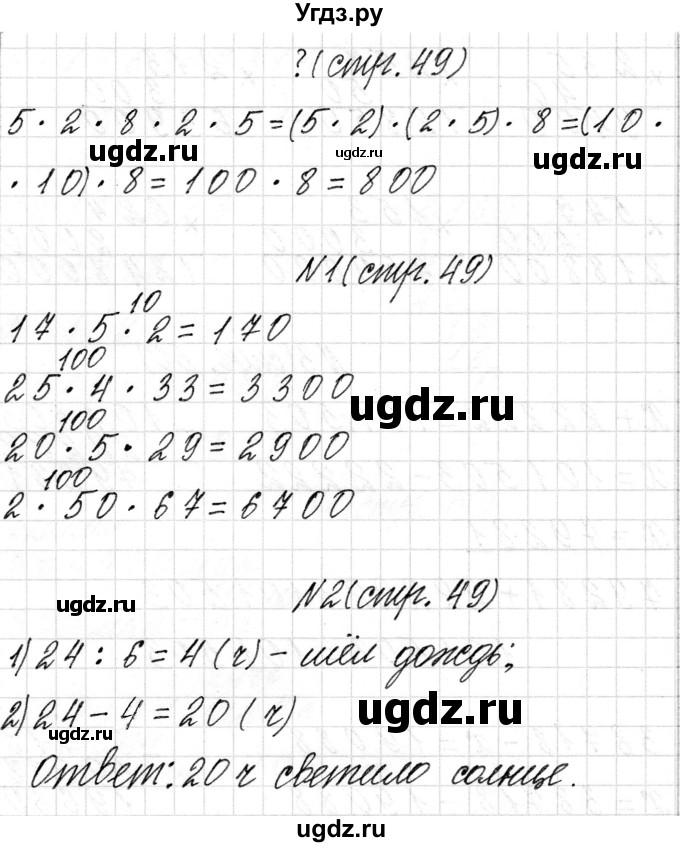 Угдз.ру
?(стр. 49)
5 · 2 · 8 · 2 · 5 = (5 · 2) · (2 · 5) · 8 = (10 ·
ugdz.ru ugdz.ru ugdz.ru
· 10) · 8 = 100 · 8 = 800
N1(стр. 49)
10
17 · 5 · 2 = 170
100
25 · 4 · 33 = 3300
ugdz.ru
100
20 · 5 · 29 = 2900
100
2 · 50 · 67 = 6700
N2(стр. 49)
ugdz.ru
1) 24 : 6 = 4 (ч) - шёл дождь;
2) 24 - 4 = 20 (ч)
ugdz.ru
ugdz.ru
Ответ: 20 ч светило солнце.
ugdz.ru
ugdz.ru